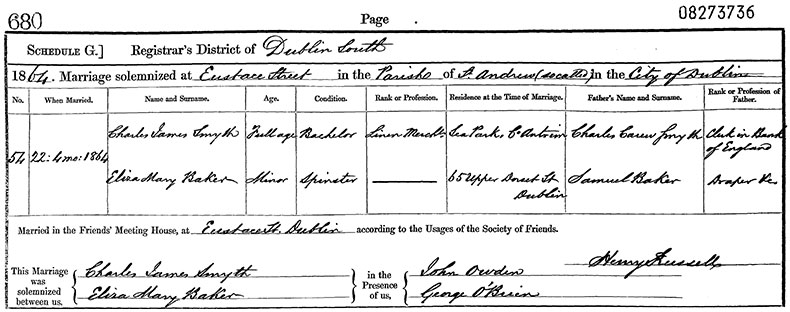 680 Page 08273736
SCHEDULE G.] Registrar's District of Dublin South
1864. Marriage solemnized at Eustace Street in the Parish of St. Andrew (so called) in the City of Dublin
No. When Married. Name and Surname. Age. Condition. Rank or Profession. Residence at the Time of Marriage. Father's Name and Surname. Rank or Profession of Father.
54 22: 4mo: 1864
Charles James Smyth Full age Bachelor Linen Mercht. Sea Park, Co Antrim Charles Carew Smyth Clerk in Bank of England
Eliza Mary Baker Minor Spinster 65 Upper Dorset St Dublin Samuel Baker Draper
Married in the Friends' Meeting House, at Eustace St. Dublin according to the Usages of the Society of Friends.
Henry Russell
This Marriage was solemnized between us,
Charles James Smyth
Eliza Mary Baker
in the Presence of us,
John Owden
George O'Brien